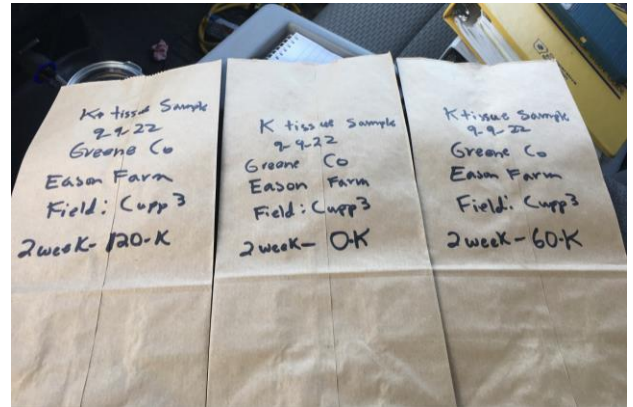 K tissue Sample
9-9-22
Greene Co
Eason Farm
Field: Cupp 3
2 week- 120-K
K tissue Sample
9-9-22
Greene Co
Eason Farm
Field: Cupp 3
2 week- 0-K
K tissue Sample
9-9-22
Greene Co
Eason Farm
Field: Cupp 3
2 week- 60-K